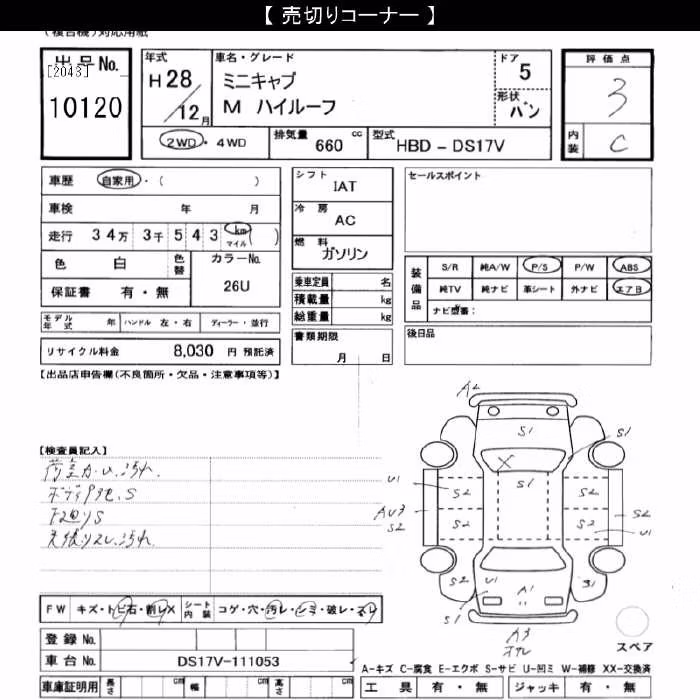 【 売切りコーナー 】
(複合機)対応用紙
出品No.
[2043]
10120
年式
H28/12月
車名・グレード
ミニキャブ
M ハイルーフ
ドア
5
形状
バン
評価点
3
内装
C
2WD・4WD
排気量
660 cc
型式
HBD - DS17V
車歴 自家用・( )
車検 年 月
走行 34万 3千 543 km マイル ( )
色 白
色替
カラーNo.
26U
保証書 有・無
シフト
IAT
冷房
AC
燃料
ガソリン
乗車定員 名
積載量 kg
総重量 kg
セールスポイント
装備品
S/R 純A/W P/S P/W ABS
純TV 純ナビ 革シート 外ナビ エアB
ナビ型番:
モデル年式 年 ハンドル 左・右 ディーラー・並行
リサイクル料金 8,030 円 預託済
書類期限
月 日
後日品
【出品店申告欄(不良箇所・欠品・注意事項等)】
【検査員記入】
荷室カ・U、汚れ
S
下回りS
汚れ
A2
S1
S1
S1
U1
S2
S2
AU3
S2
S2
S2
S2
U1
S2
U1
A1
S1
S1
A3
FW キズ・トビ石・割レX シート内装 コゲ・穴・汚レ・シミ・破レ・スレ
登録No.
車台No. DS17V-111053
車庫証明用 長さ cm 幅 cm 高さ cm
スペア
A-キズ C-腐食 E-エクボ S-サビ U-凹ミ W-補修 XX-交換済
工具 有・無 ジャッキ 有・無